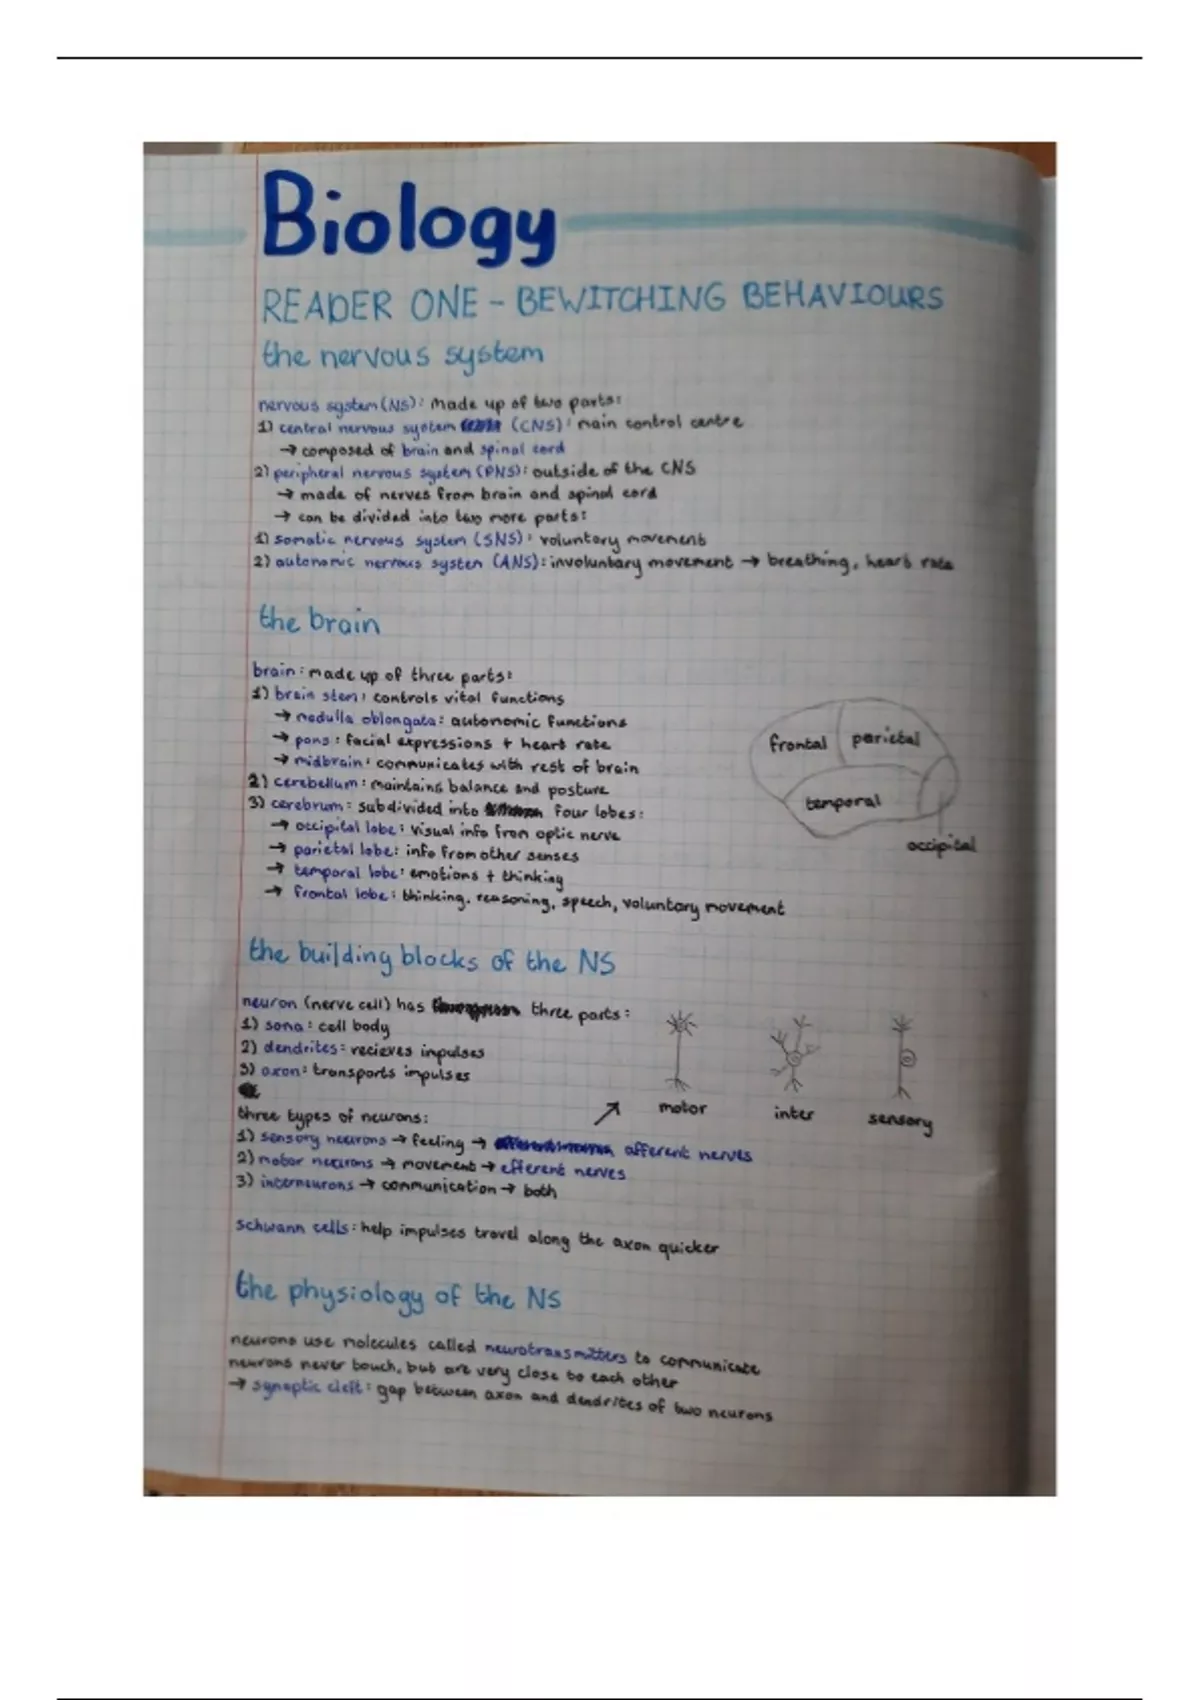 Biology
READER ONE - BEWITCHING BEHAVIOURS
the nervous system
nervous system (NS): made up of two parts:
1) central nervous system (CNS): main control centre
→ composed of brain and spinal cord
2) peripheral nervous system (PNS): outside of the CNS
→ made of nerves from brain and spinal cord
→ can be divided into two more parts:
1) somatic nervous system (SNS): voluntary movement
2) autonomic nervous system (ANS): involuntary movement → breathing, heart rate
the brain
brain: made up of three parts:
1) brain stem: controls vital functions
→ medulla oblongata: autonomic functions
→ pons: facial expressions + heart rate
→ midbrain: communicates with rest of brain
2) cerebellum: maintains balance and posture
3) cerebrum: subdivided into four lobes:
→ occipital lobe: visual info from optic nerve
→ parietal lobe: info from other senses
→ temporal lobe: emotions + thinking
→ frontal lobe: thinking, reasoning, speech, voluntary movement
frontal parietal
temporal
occipital
the building blocks of the NS
neuron (nerve cell) has three parts:
1) soma: cell body
2) dendrites: recieves impulses
3) axon: transports impulses
three types of neurons:
1) sensory neurons → feeling → afferent nerves
2) motor neurons → movement → efferent nerves
3) interneurons → communication → both
motor inter sensory
schwann cells: help impulses travel along the axon quicker
the physiology of the NS
neurons use molecules called neurotransmitters to communicate
neurons never touch, but are very close to each other
→ synaptic cleft: gap between axon and dendrites of two neurons